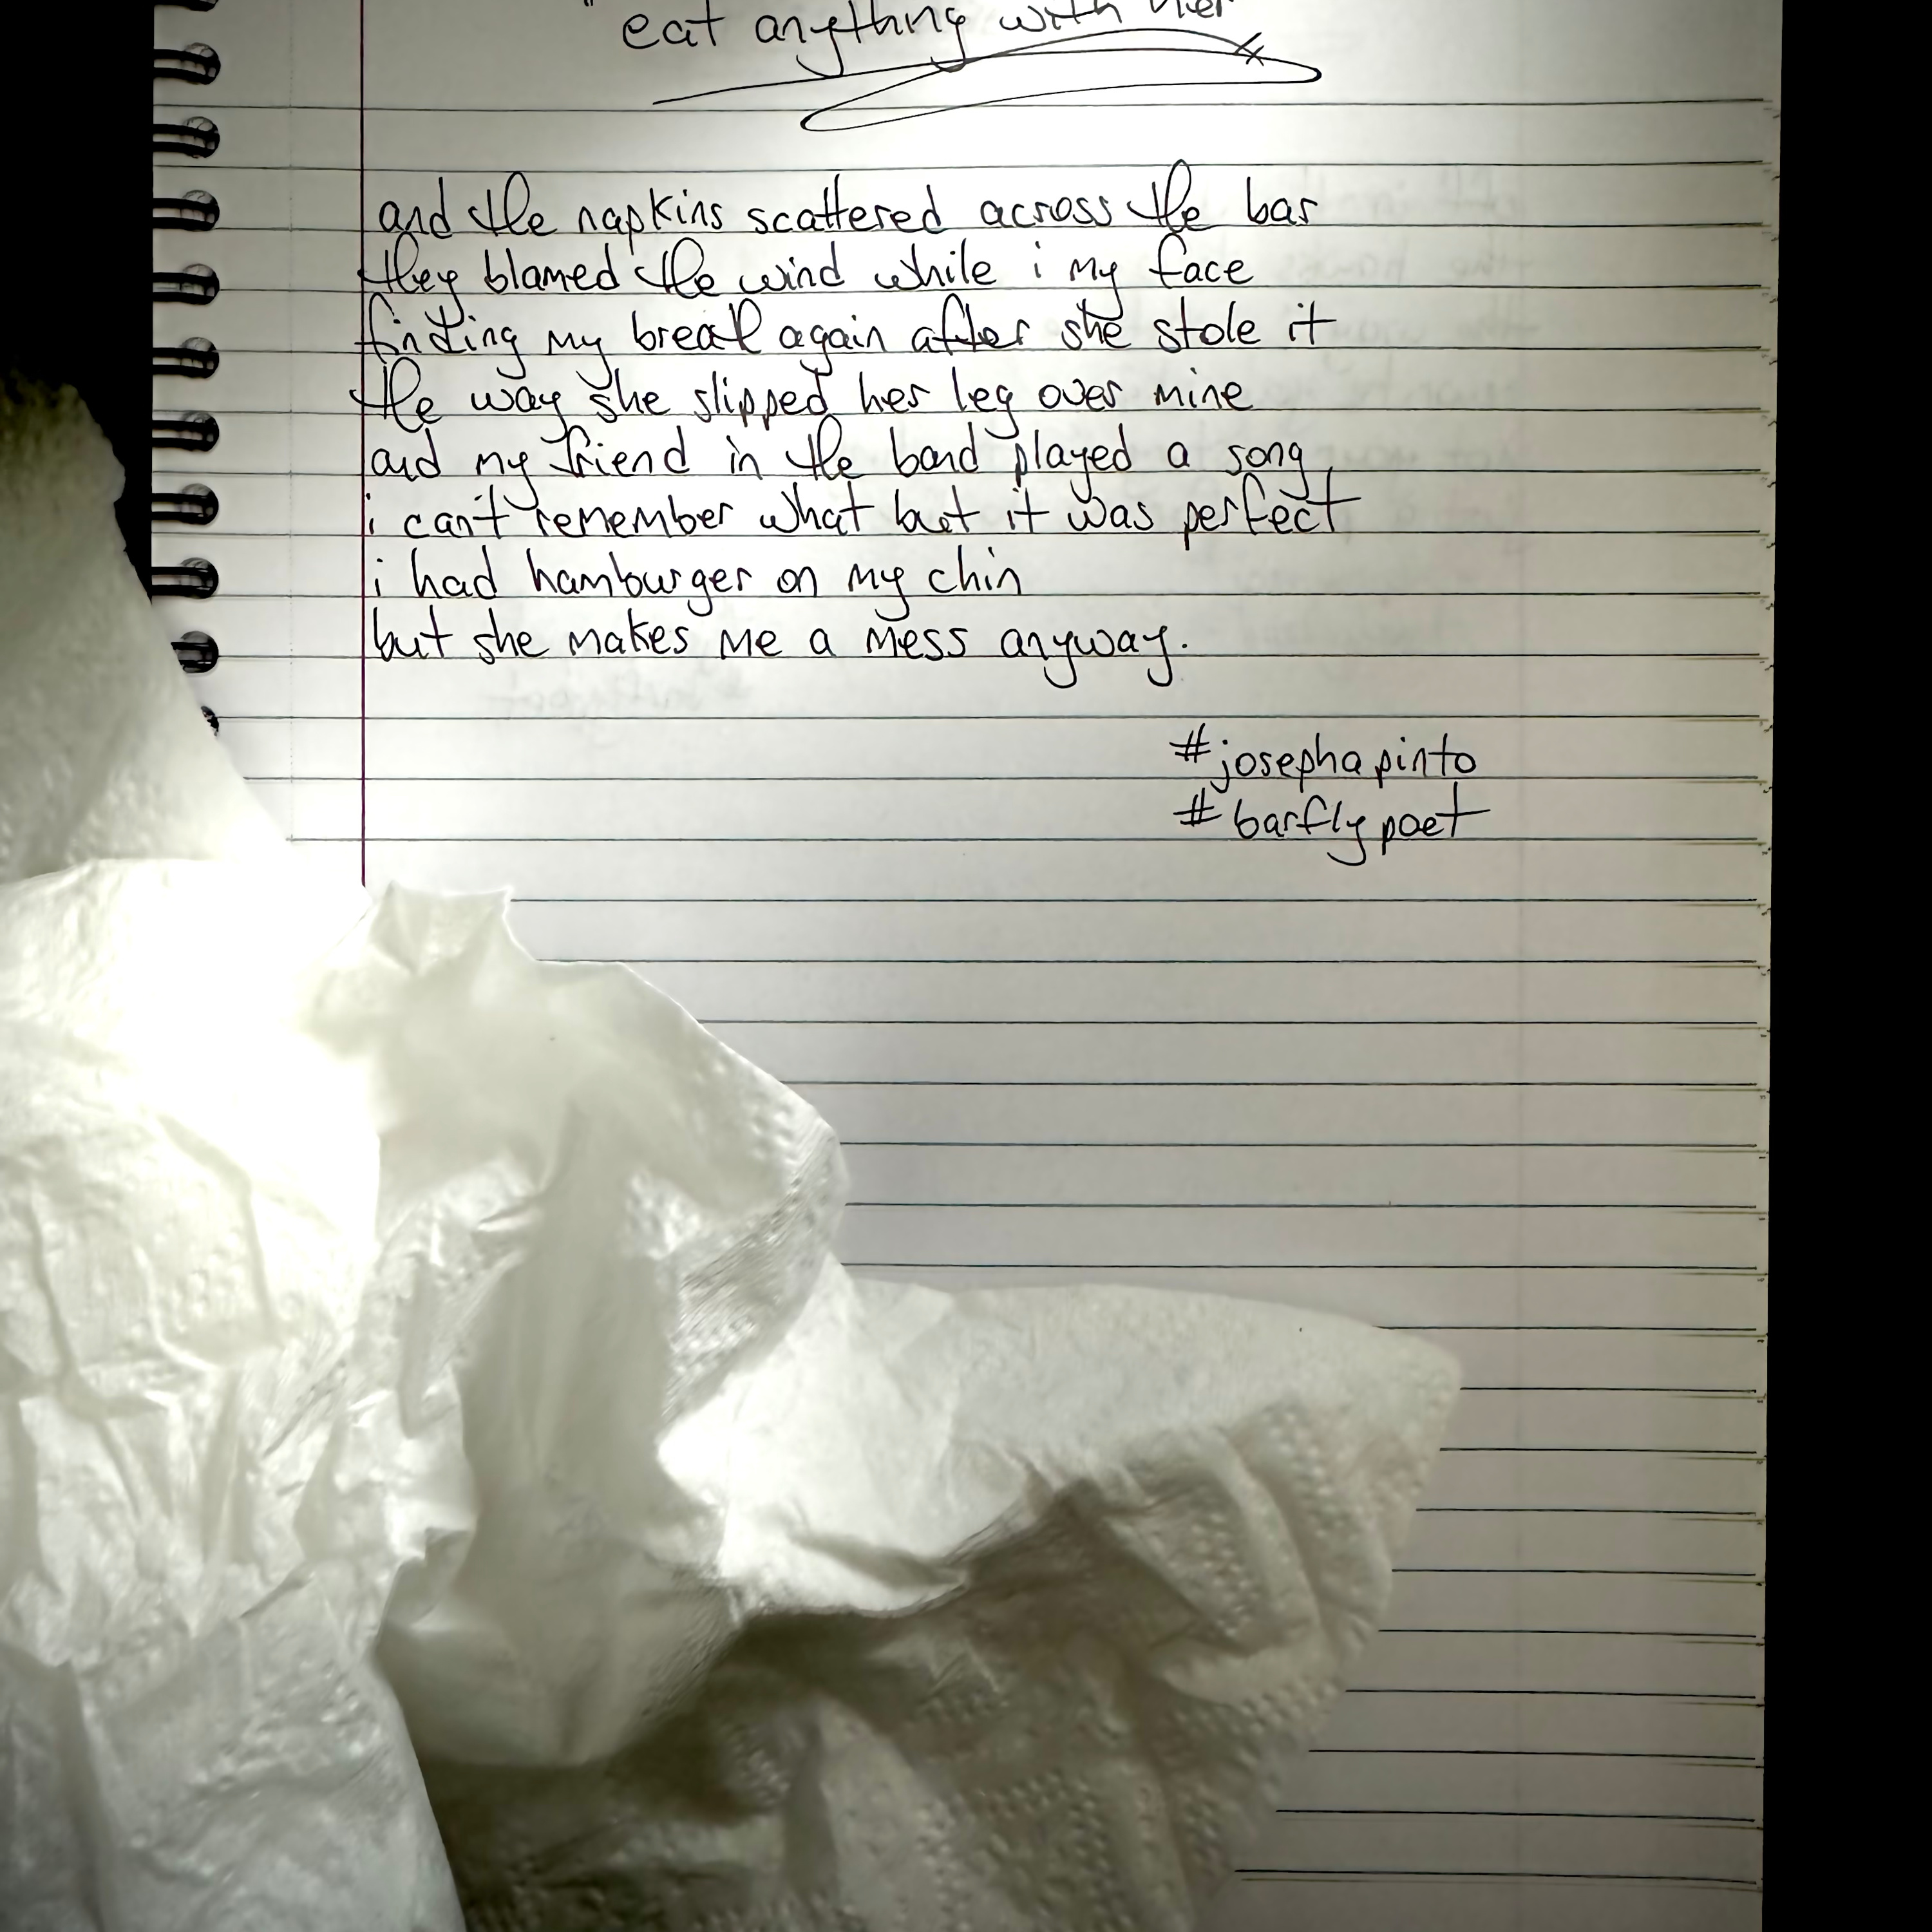 "eat anything with her"
and the napkins scattered across the bar
they blamed the wind while i my face
finding my breath again after she stole it
the way she slipped her leg over mine
and my friend in the band played a song,
i can't remember what but it was perfect
i had hamburger on my chin
but she makes me a mess anyway.
#josephapinto
#barflypoet